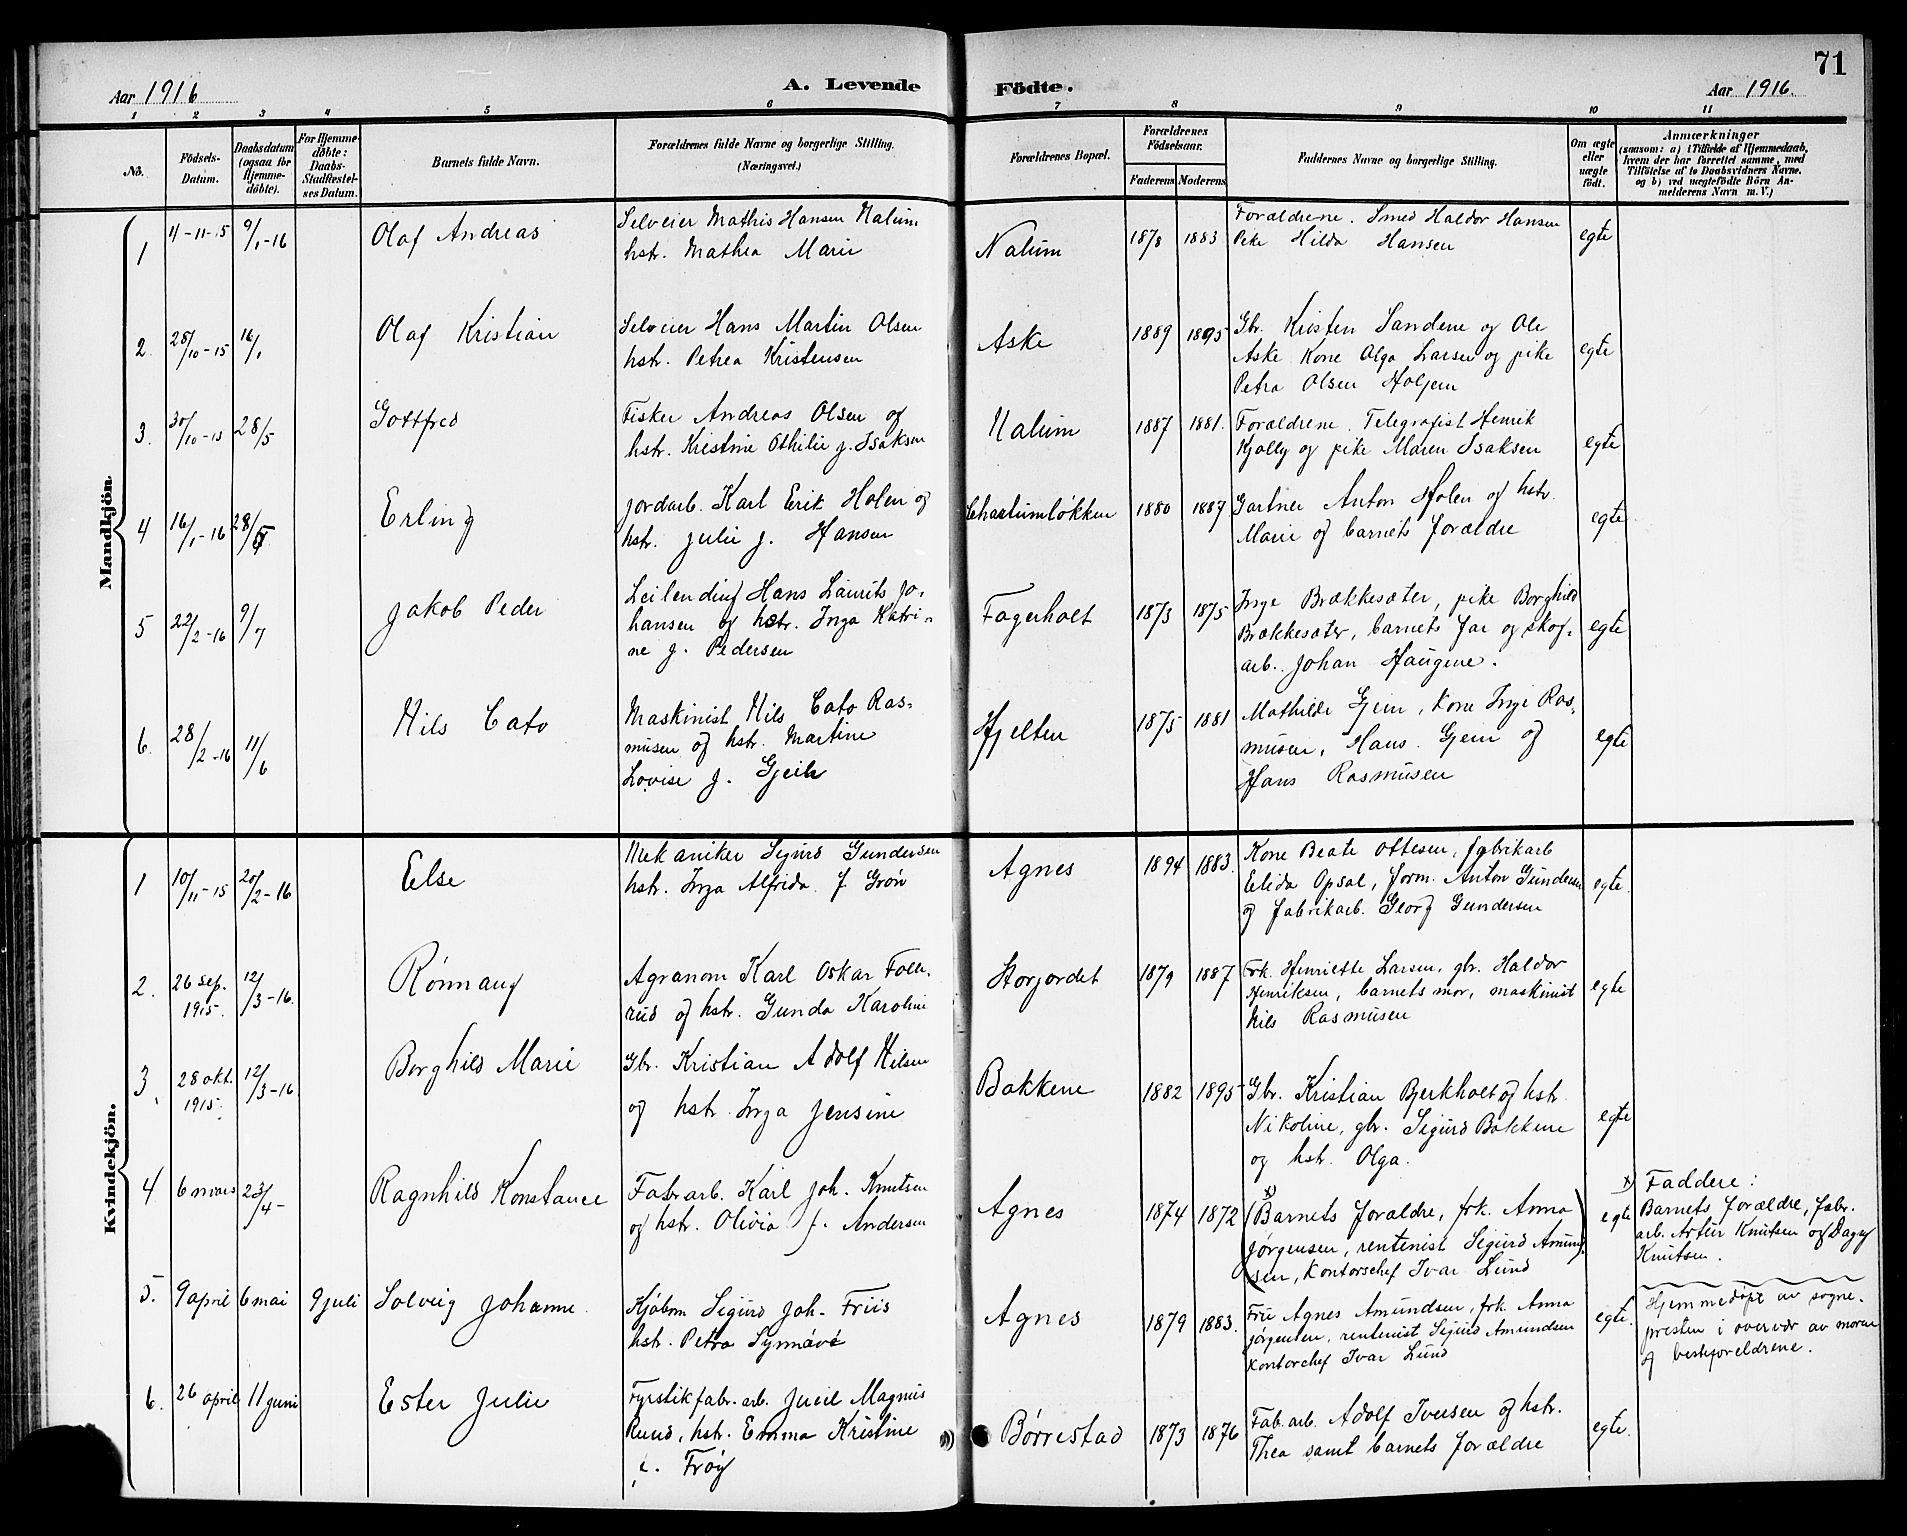 71
Aar 1916
A. Levende
Födte.
Aar 1916.
1 2 3 4 5 6 7 8 9 10 11
No.
Födsels-
Datum.
Daabsdatum
(ogsaa for
Hjemme-
döbte).
For Hjemme-
döbte:
Daabs-
Stadfæstel-
ses Datum.
Barnets fulde Navn.
Forældrenes fulde Navne og borgerlige Stilling.
(Næringsvei.)
Forældrenes Bopæl.
Forældrenes
Födselsaar.
Faderens
Moderens
Faddernes Navne og borgerlige Stilling.
Om ægte
eller
uægte
födt.
Anmærkninger
(saasom: a) i Tilfælde af Hjemmedaab,
hvem der har forrettet samme, med
Tilföielse af to Daabsvidners Navne,
og b) ved uægtefödte Börn An-
melderens Navn m. V.)
Mandkjön.
1
4-11-15
9/1-16
Olaf Andreas
Selveier Mathis Hansen Nalum
hstr. Mathea Marie
Nalum
1878
1883
Forældrene. Smed Haldor Hansen
Pike Hilda Hansen
egte
2.
28/10-15
16/1
Olaf Kristian
Selveier Hans Martin Olsen
hstr. Petrea Kristensen
Aske
1889
1895
Gbr. Kristen Sandene og Ole
Aske. Kone Olga Larsen og pike
Petra Olsen Holjem
egte
3.
30/10-15
28/5
Gottfred
Fisker Andreas Olsen og
hstr. Kristine Othilie f. Isaksen
Nalum
1887
1881.
Forældrene. Telegrafist Henrik
Kjølly og pike Maren Isaksen
egte
4
16/1-16
28/5
Erling
Jordarb. Karl Erik Holen og
hstr. Julie f. Hansen
1880
1887
Gartner Anton Holen og hstr.
Marie og barnets forældre
egte
5
22/2-16
9/7
Jakob Peder
Leilending Hans Laurits Jo-
hansen og hstr. Inga Katri-
ne f. Pedersen
Fagerholt
1873
1875
Inge Brækkesæter, pike Borghild
Brækkesæter, barnets far og skog-
arb. Johan Haugene.
egte
6.
28/2-16
11/6
Nils Cato
Maskinist Nils Cato Ras-
musen og hstr. Martine
Lovise f. Gjein
Hjelten
1875
1881
Mathilde Gjein, Kone Inge Ras-
musen, Hans Gjein og
Hans Rasmusen
egte
Kvindekjön.
1
10/11-15
20/2-16
Else
Mekaniker Sigurd Gundersen
hstr. Inga Alfrida f. Grøn
Agnes
1894
1883.
Kone Beate Ottesen, fabrikarb
Elida Opsal, form. Anton Gundersen
og fabrikarb. Georg Gundersen
egte.
2.
26 sep.
1915.
12/3-16.
Rønnaug
Agranom Karl Oskar Folle-
rud og hstr. Gunda Karoline
Storjordet
1879
1887
Frk. Henriette Larsen, gbr. Haldor
Henriksen, barnets mor, maskinist
Nils Rasmusen
egte
3.
28 okt.
1915.
12/3-16
Borghild Marie
Gbr. Kristian Adolf Nilsen
og hstr. Inga Jensine
Bakkene
1882
1895
Gbr. Kristian Bjerkholt og hstr
Nikoline, gbr. Sigurd Bakkene
og hstr. Olga.
egte
4
6 mars
23/4-
Ragnhild Konstance
Fabr arb. Karl Joh. Knutsen
og hstr. Olivia f. Andersen
Agnes
1874
1872
x) (Barnets forældre, frk. Anna
Jørgensen, rentenist Sigurd Amund-
sen, Kontorschef Ivar Lund)
egte
x) Faddere:
Barnets forældre, fabr.
arb. Artur Knutsen og Dagny
Knutsen.
5.
9 april
6 mai
9 juli
Solveig Johanne
Kjøbm Sigurd Joh. Friis
hstr. Petra Synnøve
Agnes
1879
1883.
Fru Agnes Amundsen, frk. Anna
Jørgensen, rentenist Sigurd Amundsen
Kontorchef Ivar Lund
egte.
Hjemmedøpt av sogne-
presten i overvær av moren
og besteforeldrene.
6.
26 april
11 juni
Ester Julie
Fyrstikfabr. arb. Juell Magnus
Ruud, hstr. Emma Kristine
f. Frøy
Børrestad
1873
1876
Fab. arb. Adolf Iversen og hstr.
Thea samt barnets forældre
egte.